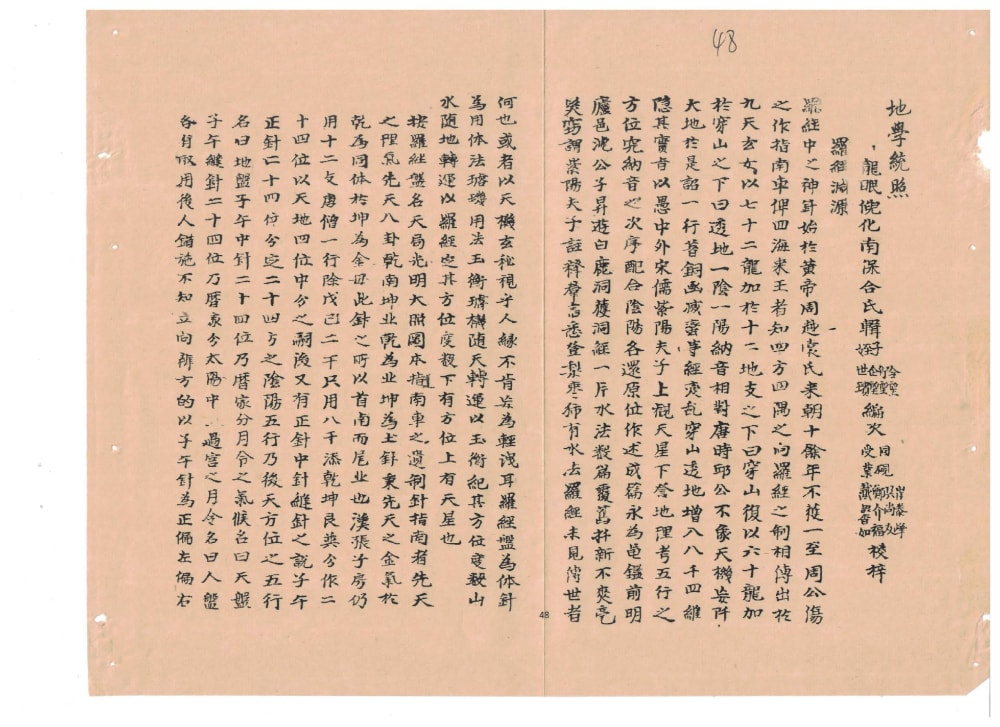 48
地學統照
龍眠倪化南保合氏輯 子 姪 世 編次 同硯 受業 校梓
羅經淵源
羅經中之神針始於黃帝周越裳氏來朝十餘年不獲一至周公傷
之作指南車俾四海來王者知四方四隅之向羅經之制相傳出於
九天玄女以七十二龍加於十二地支之下曰穿山復以六十龍加
於穿山之下曰透地一陰一陽納音相對唐時邱公不象天機妄阡
大地於是詔一行著銅函滅蠻事經淆乱穿山透地增入八千四維
隐其實音以愚中外宋儒紫陽夫子上觀天星下察地理考五行之
方位究納音之次序配合陰陽各還原位作述成篇永為龜鑑前明
廬邑沈公子昇遊白鹿洞獲洞經一片水法数篇覆舊抖新不爽毫
髮竊謂紫陽夫子註釋羣書悉登梨枣师有水去羅經未見傳世者
48
何也或者以天機玄秘視乎人緣不肯妄為輕洩耳羅經盤為体針
為用体法璿璣用法玉衡璿機随天轉運以玉衡紀其方位度数山
水随地轉運以羅經定其方位度数下有方位上有天星也
按羅經盤名天局光明大照圖本指南車之遺制針指南者先天
之理氣先天八卦乾南坤北乾為北坤為土針秉先天之金氣於
乾為同体於坤為金母此針之所以首南而尾北也漢張子房仍
用十二支唐僧一行除戊己二干只用八千添乾坤艮巽分作二
十四位以天地四位中分之嗣後又有正針中針縫針之說子午
正針二十四位分定二十四方之陰陽五行乃後天方位之五行
名曰地盤子午中針二十四位乃曆家分月令之氣候名曰天盤
子午縫針二十四位乃曆象分太陽中 過宮之月令名曰人盤
各有取用後人錯施不知立向辨方的以子午針為正偏左偏右